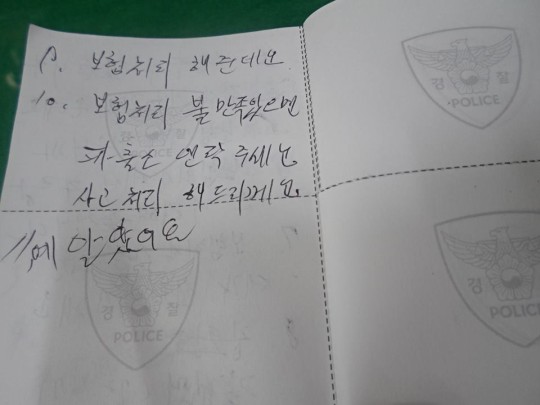 9. 보험처리 해준데요
10. 보험처리 불만족있으면
파출소 연락주세는
사고처리 해드리게요.
11. 예 알았어요
경찰
POLICE
경찰
POLICE
경
POLICE